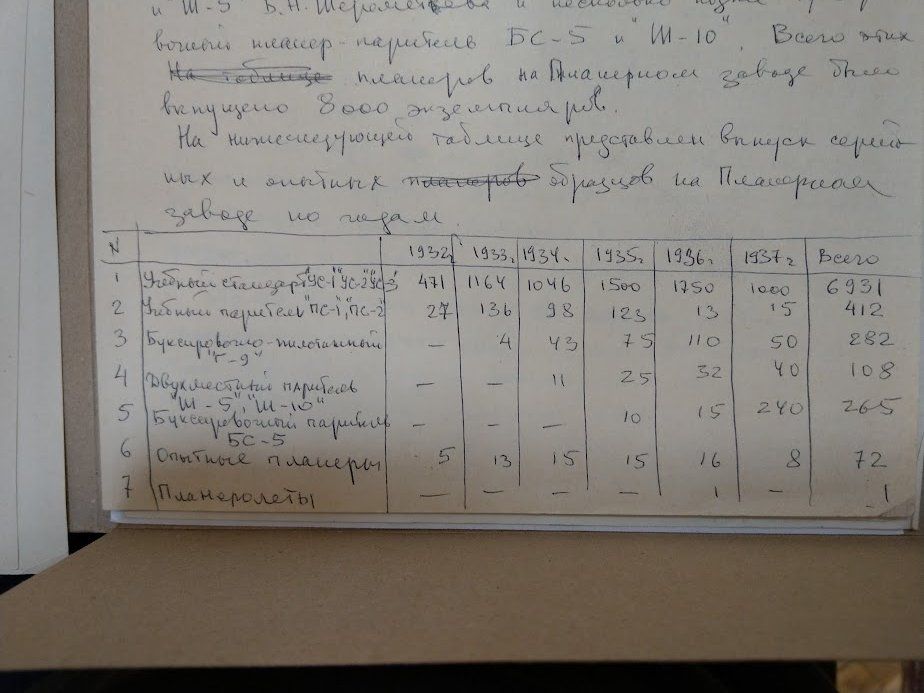 и "Ш-5" Б.Н. Шереметьева и несколько позже
вочный планер-паритель БС-5 и "Ш-10". Всего этих
На таблице планеров на Планерном заводе было
выпущено 8000 экземпляров.
На нижеследующей таблице представлен выпуск серий-
ных и опытных планеров образцов на Планерном
заводе по годам.
N 1932г. 1933г. 1934г. 1935г. 1936г. 1937г Всего
1 Учебный стандарт "УС-1" "УС-2" "УС-3 471 1164 1046 1500 1750 1000 6931
2 Учебный паритель "ПС-1", "ПС-2" 27 136 98 123 13 15 412
3 Буксировочно-пилотажный — 4 43 75 110 50 282
"Г-9"
4 Двухместный паритель — — 11 25 32 40 108
"Ш-5", "Ш-10"
5 Буксировочный паритель — — — 10 15 240 265
БС-5
6 Опытные планеры 5 13 15 15 16 8 72
7 Планеролеты — — — — 1 — 1